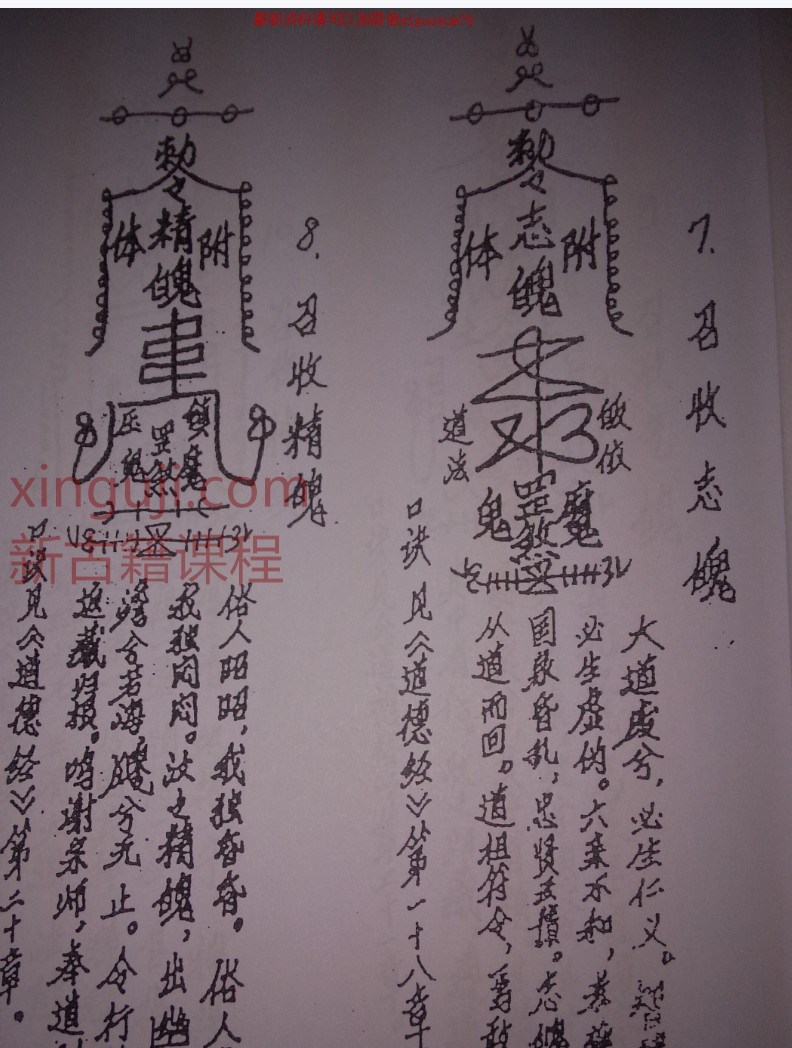 7. 召收志魄
勅令
附
志魄
体
敬依
道法
魔
罡煞
鬼
大道废兮，必生仁义。
必生虚伪。六亲不和，孝
国家昏乱，忠贤
志魄
从道而回。道祖符令，
口诀见《道德经》第一十八章
8. 召收精魄
勅令
附
精魄
体
镇魔
罡煞
压鬼
俗人昭昭，我独昏昏。俗人
我独闷闷。汝之精魄，出
兮若海，飂兮无止。令行
返藏归根。鸣谢宗师，奉道
口诀见《道德经》第二十章。
xinguji.com
新古籍课程